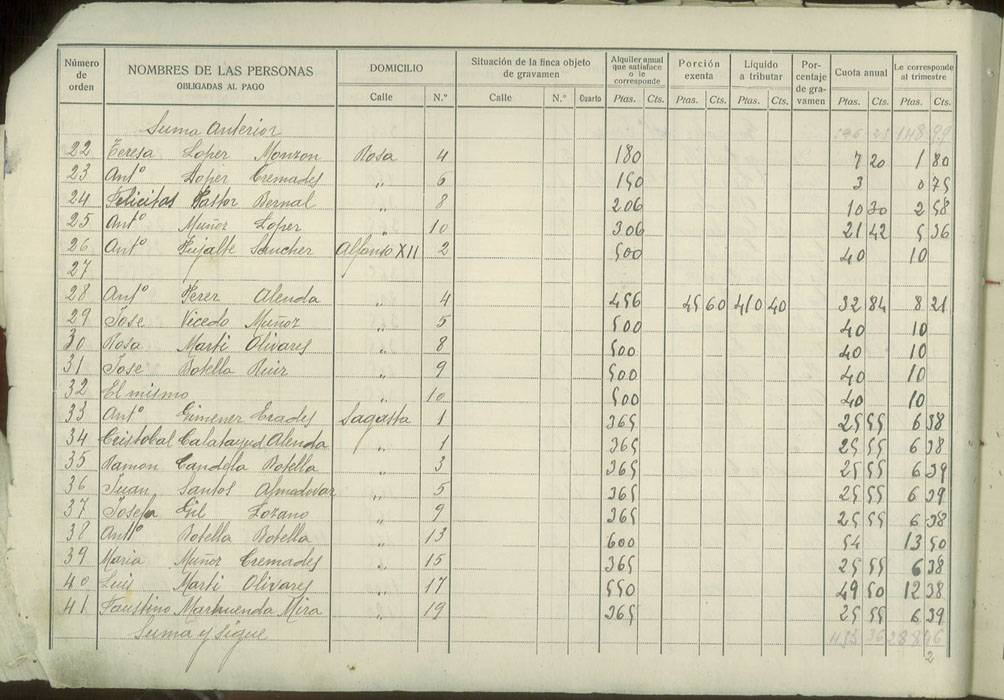 Número de orden NOMBRES DE LAS PERSONAS OBLIGADAS AL PAGO DOMICILIO Situación de la finca objeto de gravamen Alquiler anual que satisface o le corresponde Porción exenta Líquido a tributar Porcentaje de gravamen Cuota anual Le corresponde al trimestre
Calle N.º Calle N.º Cuarto Ptas. Cts. Ptas. Cts. Ptas. Cts. Ptas. Cts. Ptas. Cts.
Suma Anterior 148 99
22 Teresa Lopez Monzon Rosa 4 180 7 20 1 80
23 Antº Lopez Cremades " 6 150 3 0 75
24 Felicitas Pastor Bernal " 8 206 10 30 2 58
25 Antº Muñoz Lopez " 10 306 21 42 5 36
26 Antº Pujalte Sanchez Alfonso XII 2 500 40 10
27
28 Antº Perez Alenda " 4 456 45 60 410 40 32 84 8 21
29 Jose Vicedo Muñoz " 5 500 40 10
30 Rosa Marti Olivares " 8 500 40 10
31 Jose Botella Ruiz " 9 500 40 10
32 El mismo " 10 500 40 10
33 Antº Gimenez Erades Sagasta 1 365 25 55 6 38
34 Cristobal Calatayud Alenda " 1 365 25 55 6 38
35 Ramon Candela Botella " 3 365 25 55 6 39
36 Juan Santos Almodovar " 5 365 25 55 6 39
37 Josefa Gil Lozano " 9 365 25 55 6 38
38 Antº Botella Botella " 13 600 54 13 50
39 Maria Muñoz Cremades " 15 365 25 55 6 38
40 Luis Marti Olivares " 17 550 49 50 12 38
41 Faustino Marhuenda Mira " 19 365 25 55 6 39
Suma y sigue 36 288 96
2